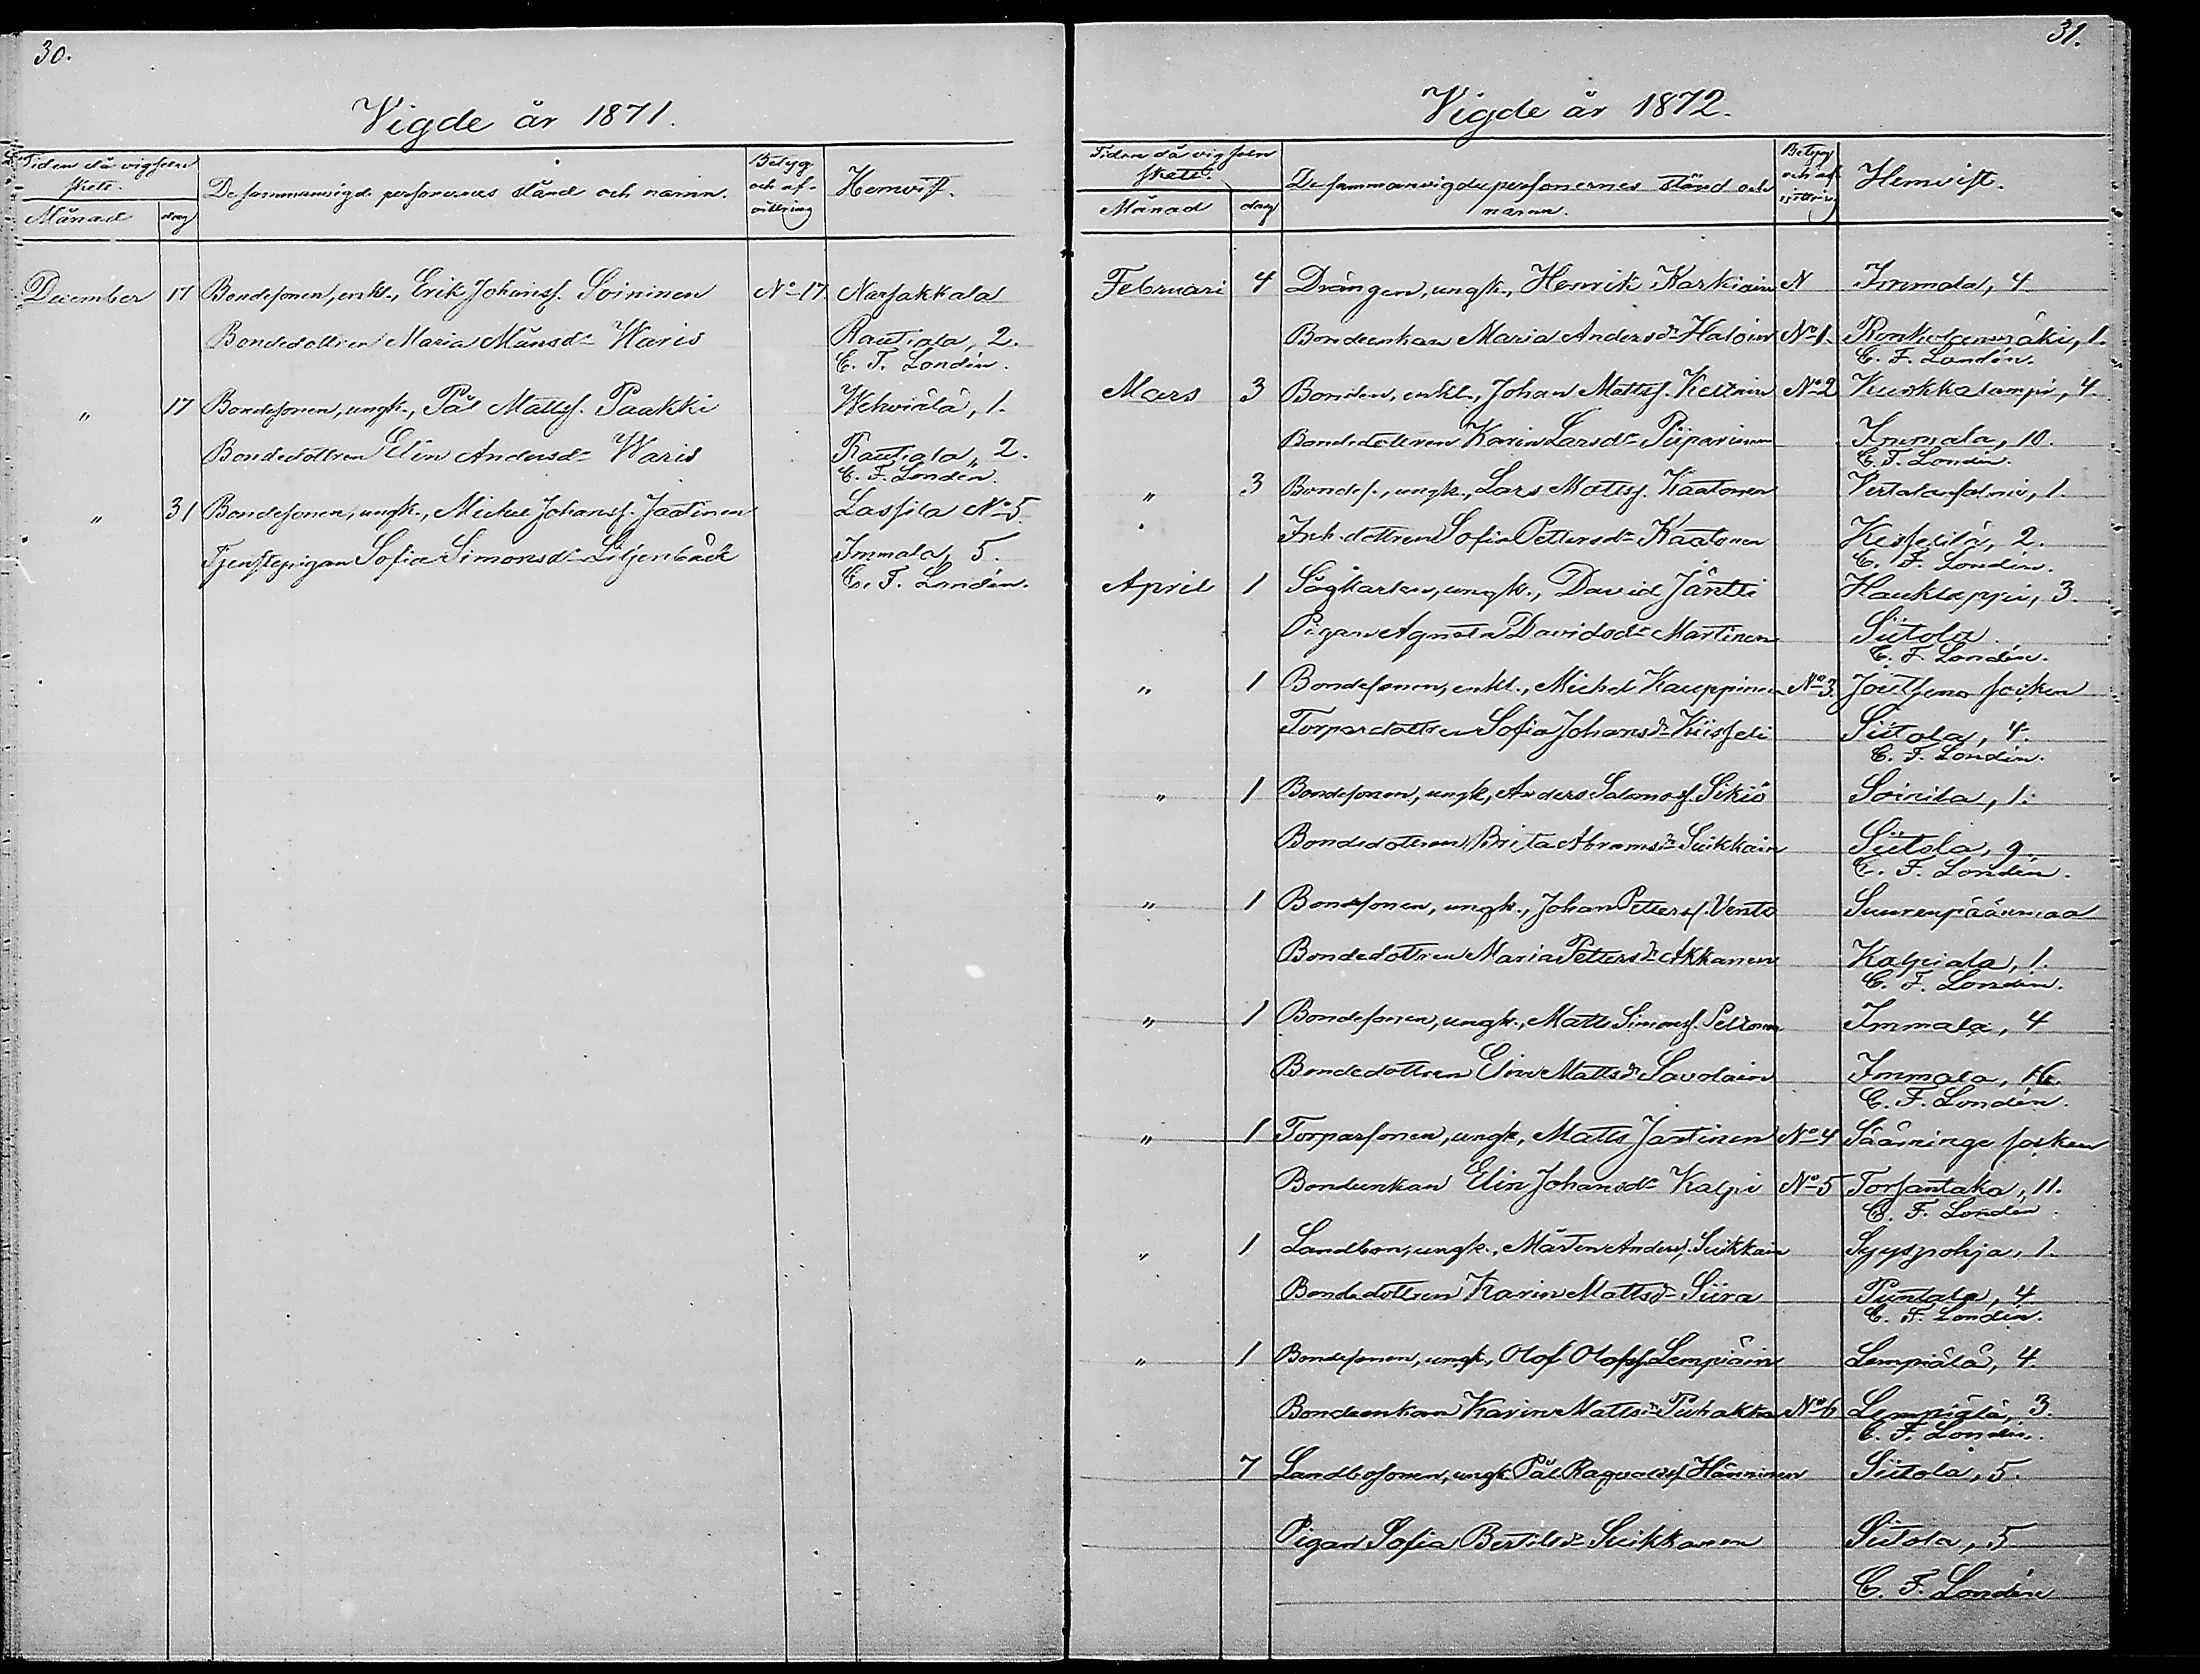 30.
Vigde år 1871.
Tiden då vigseln skett.
Månad
dag
De sammanvigde personernes stånd och namn.
Betyg och af-vittring
Hemvist.
December 17 Bondesonen, enkl., Erik Johanss. Soininen No 17 Narsakkala
Bondedottren Maria Månsdr Waris Rautiala, 2.
C. F. Londén.
" 17 Bondesonen, ungk., Pål Mattss. Paakki Wehviälä, 1.
Bondedottren Elin Andersdr Waris Rautiala, 2.
C. F. Londén.
" 31 Bondesonen, ungk., Michel Johanss. Jaatinen Lassila No 5.
Tjenstepigan Sofia Simonsdr Liljenbäck Immala, 5.
C. F. Londén.
31.
Vigde år 1872.
Tiden då vigseln skett.
Månad
dag
De sammanvigde personernes stånd och namn.
Betyg och af-vittring
Hemvist.
Februari 4 Drängen, ungk., Henrik Karkiain N Immala, 4.
Bondeenkan Maria Andersdr Haloin No 1. 1.
C. F. Londén.
Mars 3 Bonden, enkl., Johan Mattss. No 2 Kurkkalampi, 4.
Bondedottren Karin Larsdr Piiparinen Immala, 10.
C. F. Londén.
" 3 Bondes., ungk., Lars Mattss. Kaatonen 1.
Inh. dottren Sofia Pettersdr Kaatonen Kesseilä, 2.
C. F. Londén.
April 1 Sågkarlen, ungk., David Jäntti Haukilappi, 3.
Pigan Agneta Davidsdr Martinen Siitola.
C. F. Londén.
" 1 Bondesonen, enkl., Michel Kauppinen No 3. Joutseno socken
Torpardottren Sofia Johansdr Kiisseli Siitola, 4.
C. F. Londén.
" 1 Bondesonen, ungk., Anders Salomoss. Sikiö Soinila, 1.
Bondedottren Brita Abramsdr Suikkain Siitola, 9.
C. F. Londén.
" 1 Bondesonen, ungk., Johan Petterss. Vento Suurenpäänmaa
Bondedottren Maria Pettersdr Akkanen Kalpiala, 1.
C. F. Londén.
" 1 Bondesonen, ungk., Matts Simonss. Peltonen Immala, 4
Bondedottren Elin Mattsdr Savolain Immala, 16.
C. F. Londén.
" 1 Torparsonen, ungk., Matts Jantinen No 4 Sääminge socken
Bondeenkan Elin Johansdr Kalpi No 5 Torsantaka, 11.
C. F. Londén.
" 1 Landbon, ungk., Mårten Anderss. Suikkain Syyspohja, 1.
Bondedottren Karin Mattsdr Siira Puntala, 4
C. F. Londén.
" 1 Bondesonen, ungk., Olof Olofss. Lempiäin Lempiälä, 4.
Bondeenkan Karin Mattsdr Puhakka No 6 Lempiälä, 3.
C. F. Londén.
7 Landbosonen, ungk. Pål Raqualss. Hänninen Siitola, 5.
Pigan Sofia Bertilsdr Suikkanen Siitola, 5
C. F. Londén